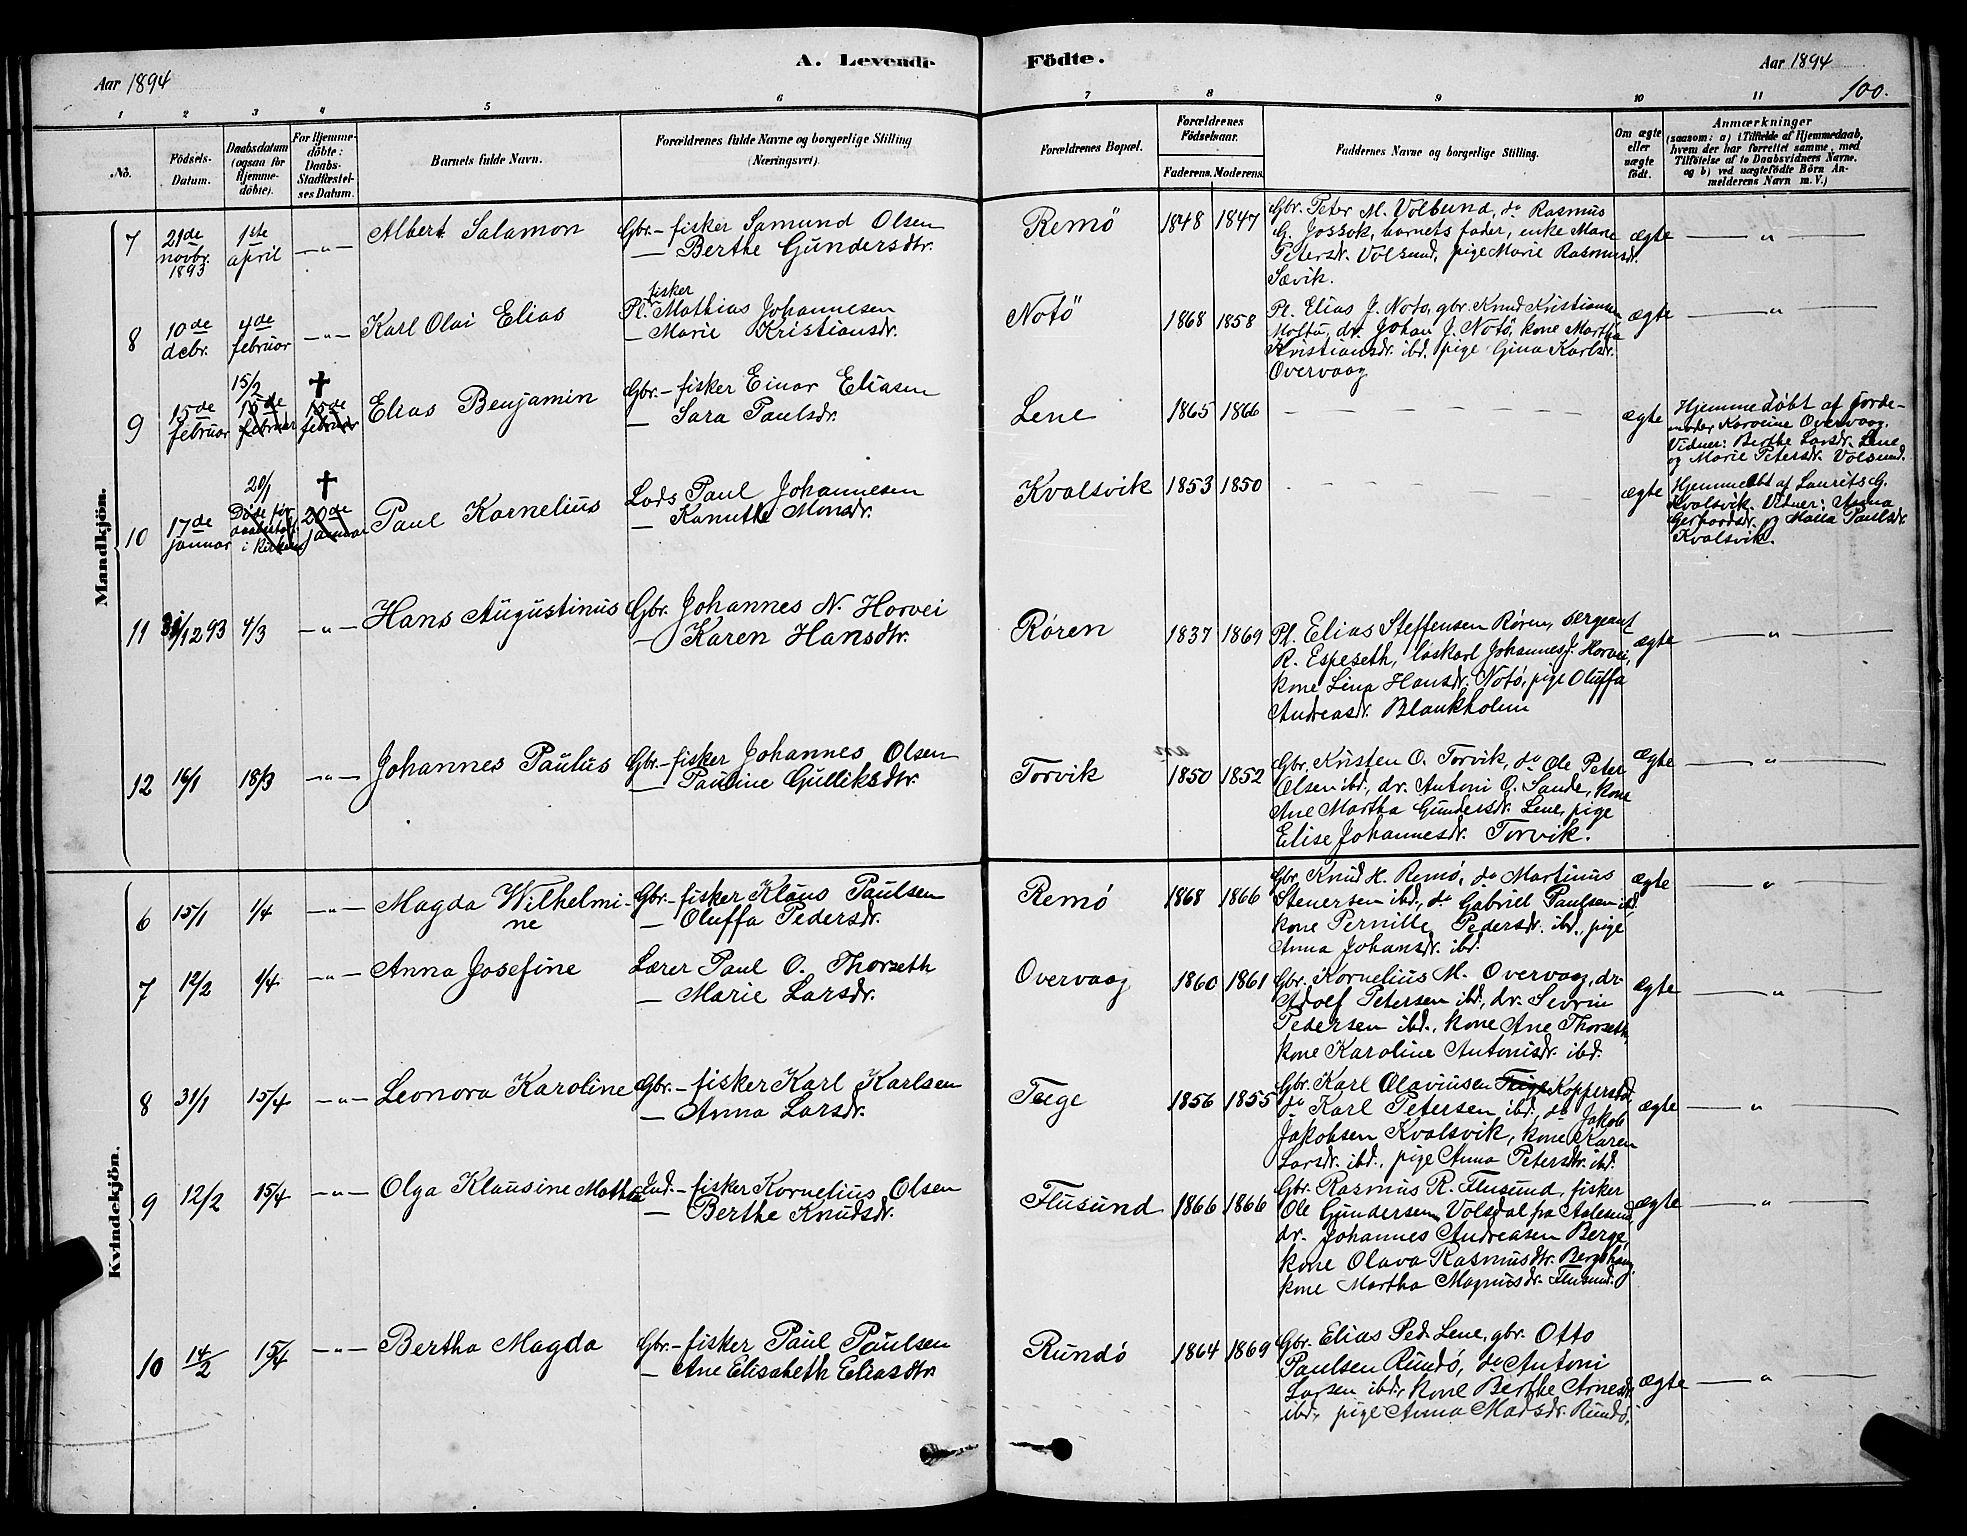 Aar 1894
A. Levende Födte.
Aar 1894
100.
1 2 3 4 5 6 7 8 9 10 11
No.
Födsels-Datum.
Daabsdatum (ogsaa for Hjemmedöbte).
For Hjemmedöbte: Daabs-Stadfæstelses Datum.
Barnets fulde Navn.
Forældrenes fulde Navne og borgerlige Stilling (Næringsvei).
Forældrenes Bopæl.
Forældrenes Födselsaar.
Faderens. Moderens.
Faddernes Navne og borgerlige Stilling.
Om ægte eller uægte födt.
Anmærkninger
(saasom: a) i Tilfælde af Hjemmedaab, hvem der har forrettet samme, med Tilföielse af to Daabsvidners Navne, og b) ved uægtefödte Börn Anmelderens Navn m. V.)
Mandkjön.
7 21de novbr. 1893 1ste april —"— Albert Salamon Gbr.-fisker Samund Olsen
— Berthe Gundersdtr.
Remö 1848 1847
Gbr. Peter M. Volsund, do Rasmus
G. Jossok, barnets fader, enke Marie
Petersdr. Volsund, pige Marie Rasmusdr.
Sævik.
ægte —"—
8 10de debr. 4de februar —"— Karl Olai Elias
fisker
Pl. Mathias Johannesen
— Marie Kristiansdr.
Notö 1868 1858
Pl. Elias J. Notø, gbr. Knud Kristiansen
Moltu, dr. Johan J. Notö, kone Martha
Kristiansdr. ibd. pige Gina Karlsdr.
Overvaag
ægte —"—
9 15de februar 15/2 15de februar † 15de februar Elias Benjamin Gbr.-fisker Einar Eliasen
— Sara Paulsdr.
Lene 1865 1866 — — — ægte
Hjemmedöbt af Jorde-
moder Overvaag.
Vidner: Berthe Larsdr. Lene
og Marie Petersdr. Volsund.
10 17de januar 20/1 Døde før i kirken † 20de januar Paul Kornelius Lods Paul Johannesen
— Kanutte Monsdr.
Kvalsvik 1853 1850 — — — ægte
Hjemmedöbt af Laurits G.
Kvalsvik. Vidner: Anna
Gerhardsdr. og Paulsdr.
Kvalsvik.
11 31/12 93 4/3 —"— Hans Augustinus Gbr. Johannes N. Horvei
— Karen Hansdtr.
Røren 1837 1869
Pl. Elias Steffensen Røren, sergeant
R. Espeseth, løskarl Johannes J. Horvei,
kone Lina Hansdr. Notö, pige Oluffa
Andreasdr. Blankholm
ægte —"—
12 16/1 18/3 —"— Johannes Paulus Gbr.-fisker Johannes Olsen
— Pauline Gulliksdtr.
Torvik 1850 1852
Gbr. Kristen O. Torvik, do Ole Peter
Olsen ibd., dr. Antoni O. Sande, kone
Ane Martha Gundersdr. Lene, pige
Elise Johannesdr. Torvik.
ægte —"—
Kvindekjön.
6 15/1 1/4 —"— Magda Wilhelmi-
ne
Gbr.-fisker Klaus Paulsen
— Oluffa Pedersdr.
Remø 1868 1866
Gbr. Knud H. Remø, do Martinus
Stenersen ibd., do Gabriel Paulsen ibd.
kone Pernille Pedersdr. ibd., pige
Anna Johansdr. ibd.
ægte —"—
7 12/2 1/4 —"— Anna Josefine Lærer Paul O. Thorseth
— Marie Larsdr.
Overvaag 1860 1861
Gbr. Kornelius M. Overvaag, dr.
Adolf Petersen ibd., dr. Sevrin
Pedersen ibd., kone Ane Thorseth,
kone Karoline Antonisdr. ibd.
ægte —"—
8 31/1 15/4 —"— Leonora Karoline Gbr.-fisker Karl Karlsen
— Anna Larsdr.
Teige 1856 1855
Gbr. Karl Olaviusen Teige Koppersted
do Karl Petersen ibd., do Jakob
Jakobsen Kvalsvik, kone Karen
Larsdr. ibd., pige Anna Petersdtr. ibd.
ægte —"—
9 12/2 15/4 —"— Olga Klausine Mathea Ind.-fisker Kornelius Olsen
— Berthe Knudsdr.
Flusund 1866 1866
Gbr. Rasmus R. Flusund, fisker
Ole Gundersen Volsdal fra Aalesund,
dr. Johannes Andreasen Berge,
kone Olava Rasmusdtr. Bergshaug
kone Martha Magnusdr. Flusund.
ægte —"—
10 14/2 15/4 —"— Bertha Magda Gbr.-fisker Paul Paulsen
— Ane Elisabeth Eliasdtr.
Rundö 1864 1869
Gbr. Elias Ped. Lene, gbr. Otto
Paulsen Rundö, do Antoni
Larsen ibd., kone Berthe Arnesdr.
ibd., pige Anna Madsdr. Rundö.
ægte —"—